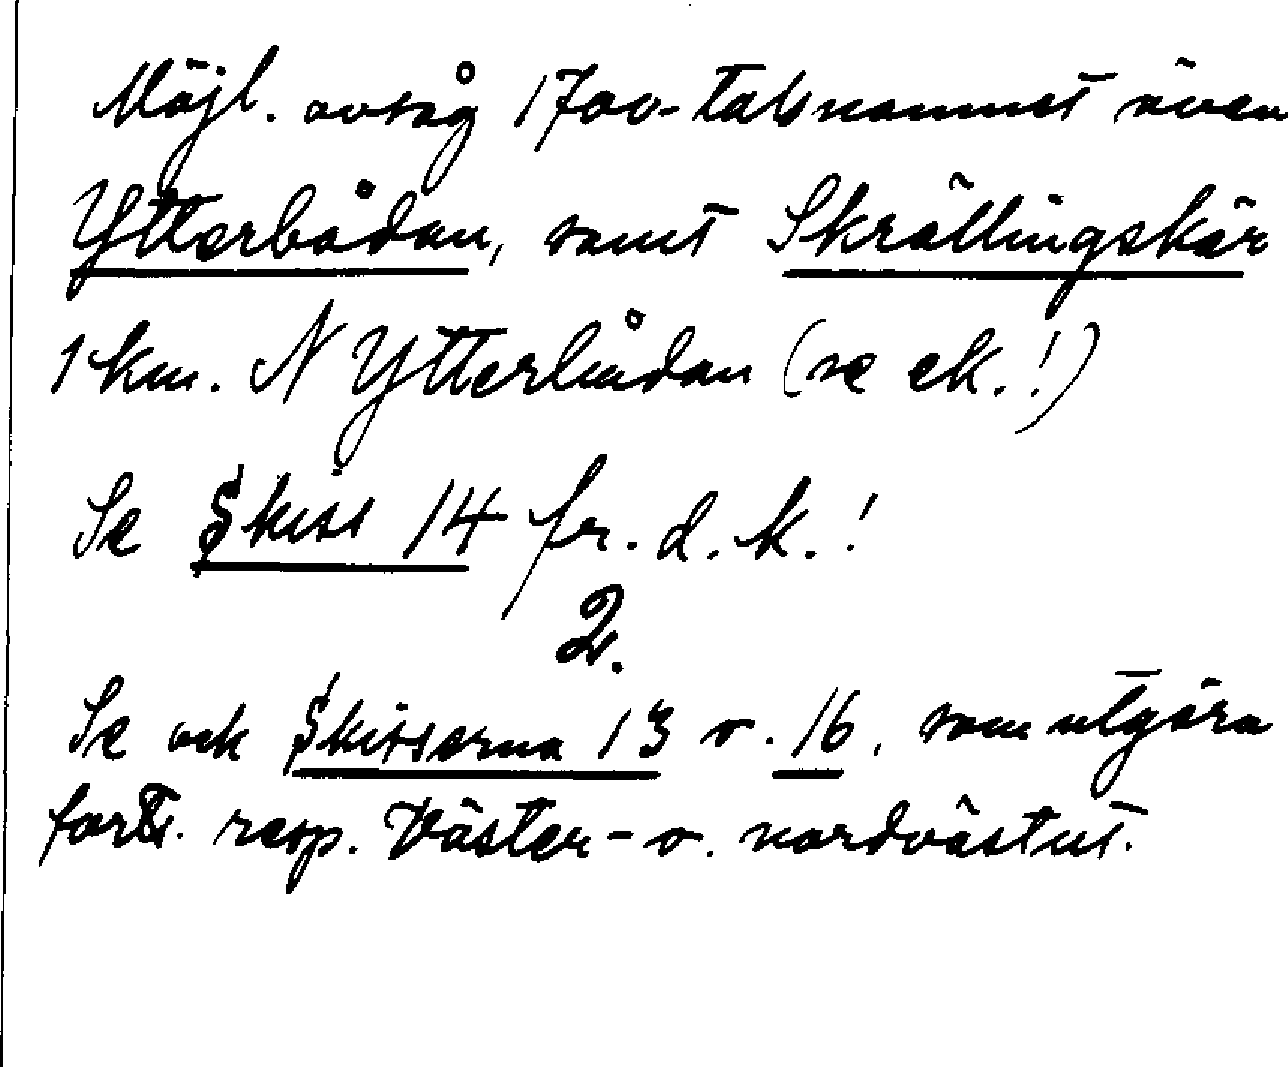 Möjl. avsåg 1700-talsnamnet även
Ytterbådan, samt Skrällingskär
1 km. N Ytterbådan (se ek.!)
Se Skiss 14 fr. d. k.!
2.
Se ock Skisserna 13 o. 16, som utgöra
forts. resp. Väster- o. nordvästut.